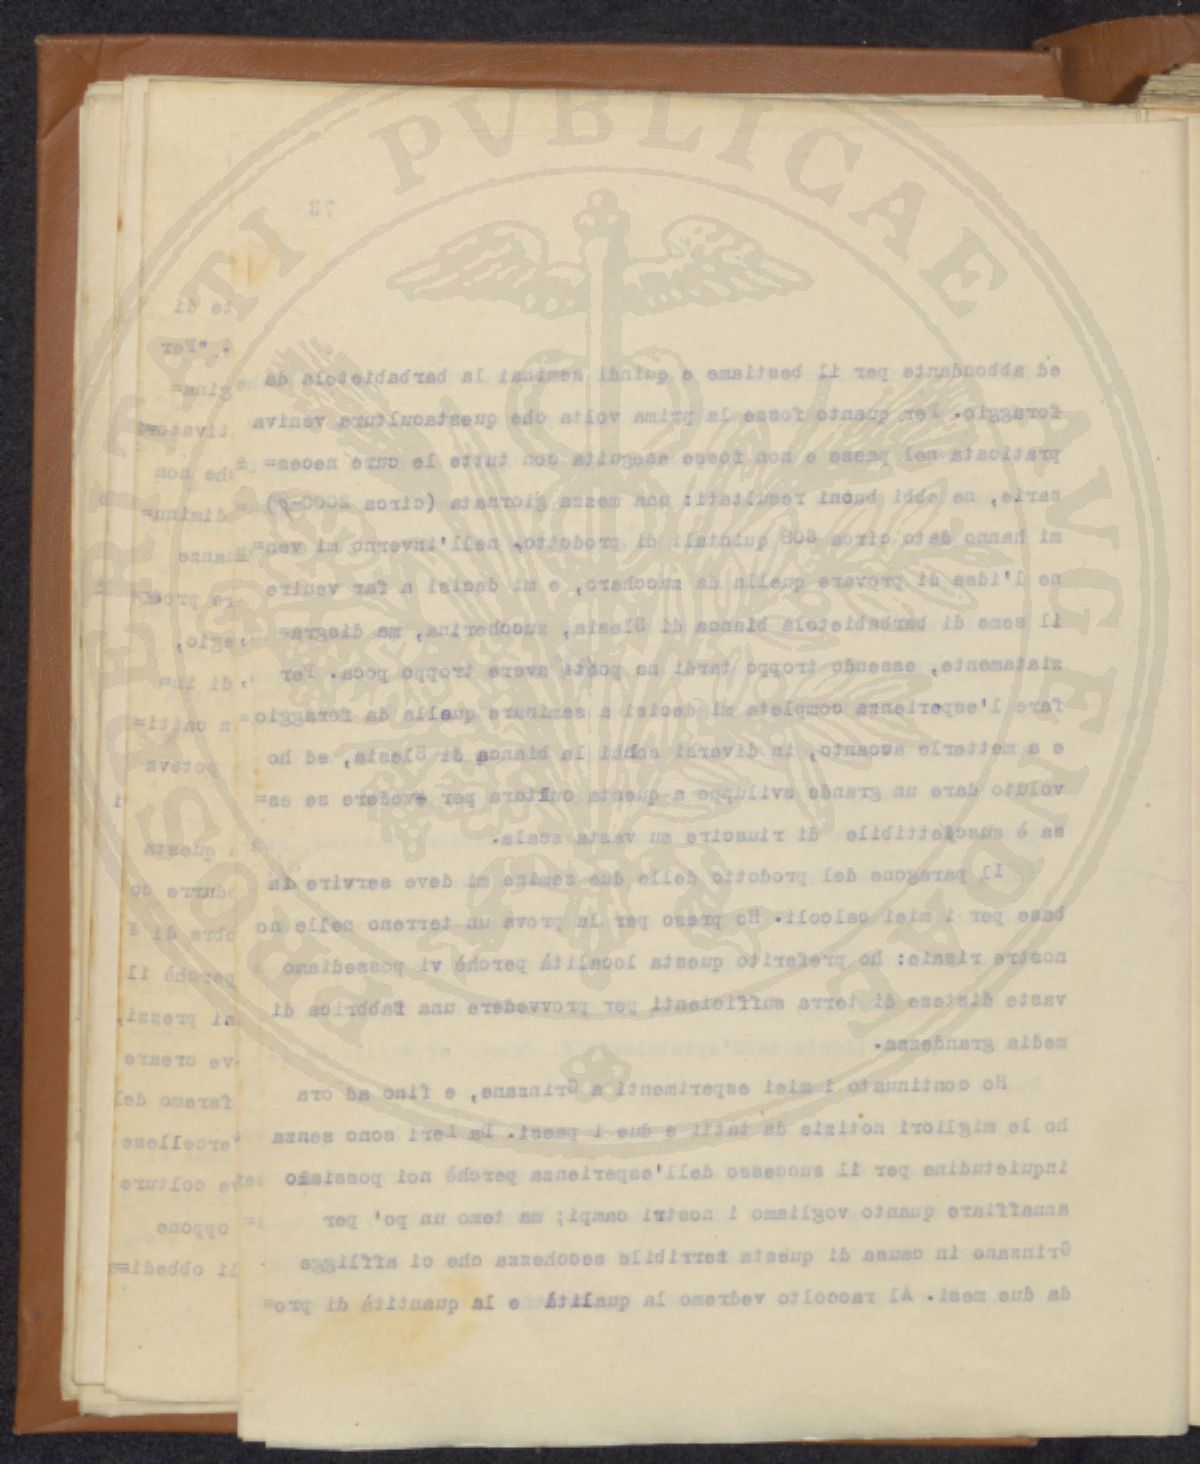 73
ed abbondante per il bestiame e quindi seminai la barbabietola da
foraggio. Per quanto fosse la prima volta che questacultura veniva
praticata nel paese e non fosse eseguita con tutte le cure neces=
sarie, ne ebbi buoni resultati: una mezza giornata (circa 2000mq)
mi hanno dato circa 608 quintali di prodotto, nell'inverno mi ven=
ne l'idea di provare quella da zucchero, e mi decisi a far venire
il seme di barbabietola bianca di Slesia, zuccherina, ma disgra=
ziatamente, essendo troppo tardi ne potei avere troppo poca. Per
fare l'esperienza completa mi decisi a seminare quella da foraggio
e a metterle accanto, in diversi solchi la bianca di Slesia, ed ho
voluto dare un grande sviluppo a questa cultura per vedere se es=
sa è suscettibile di riuscire su vasta scala.
Il paragone del prodotto delle due semine mi deve servire di
base per i miei calcoli. Ho preso per la prova un terreno nelle no
nostre risaie: ho preferito questa località perchè vi possediamo
vaste distese di terra sufficienti per provvedere una fabbrica di
media grandezza.
Ho continuato i miei esperimenti a Grinzane, e fino ad ora
ho le migliori notizie da tutti e due i paesi. Da Leri sono senza
inquietudine per il successo dell'esperienza perchè noi possiamo
annaffiare quanto vogliamo i nostri campi; ma temo un po' per
Grinzane in causa di questa terribile secchezza che ci affligge
da due mesi. Al raccolto vedremo la qualità e la quantità di pro=
te di
. "Per
gina=
tivatori
che non
diminu=
re proc
egio,
di in=
n catti=
poteva
questa
odurre
di
perchè il
ai prezzi,
ve creare
faremo del
vercellese
ve colture
oppone
li obbedi=
PROSPERITATI PVBLICAE AVGENDAE